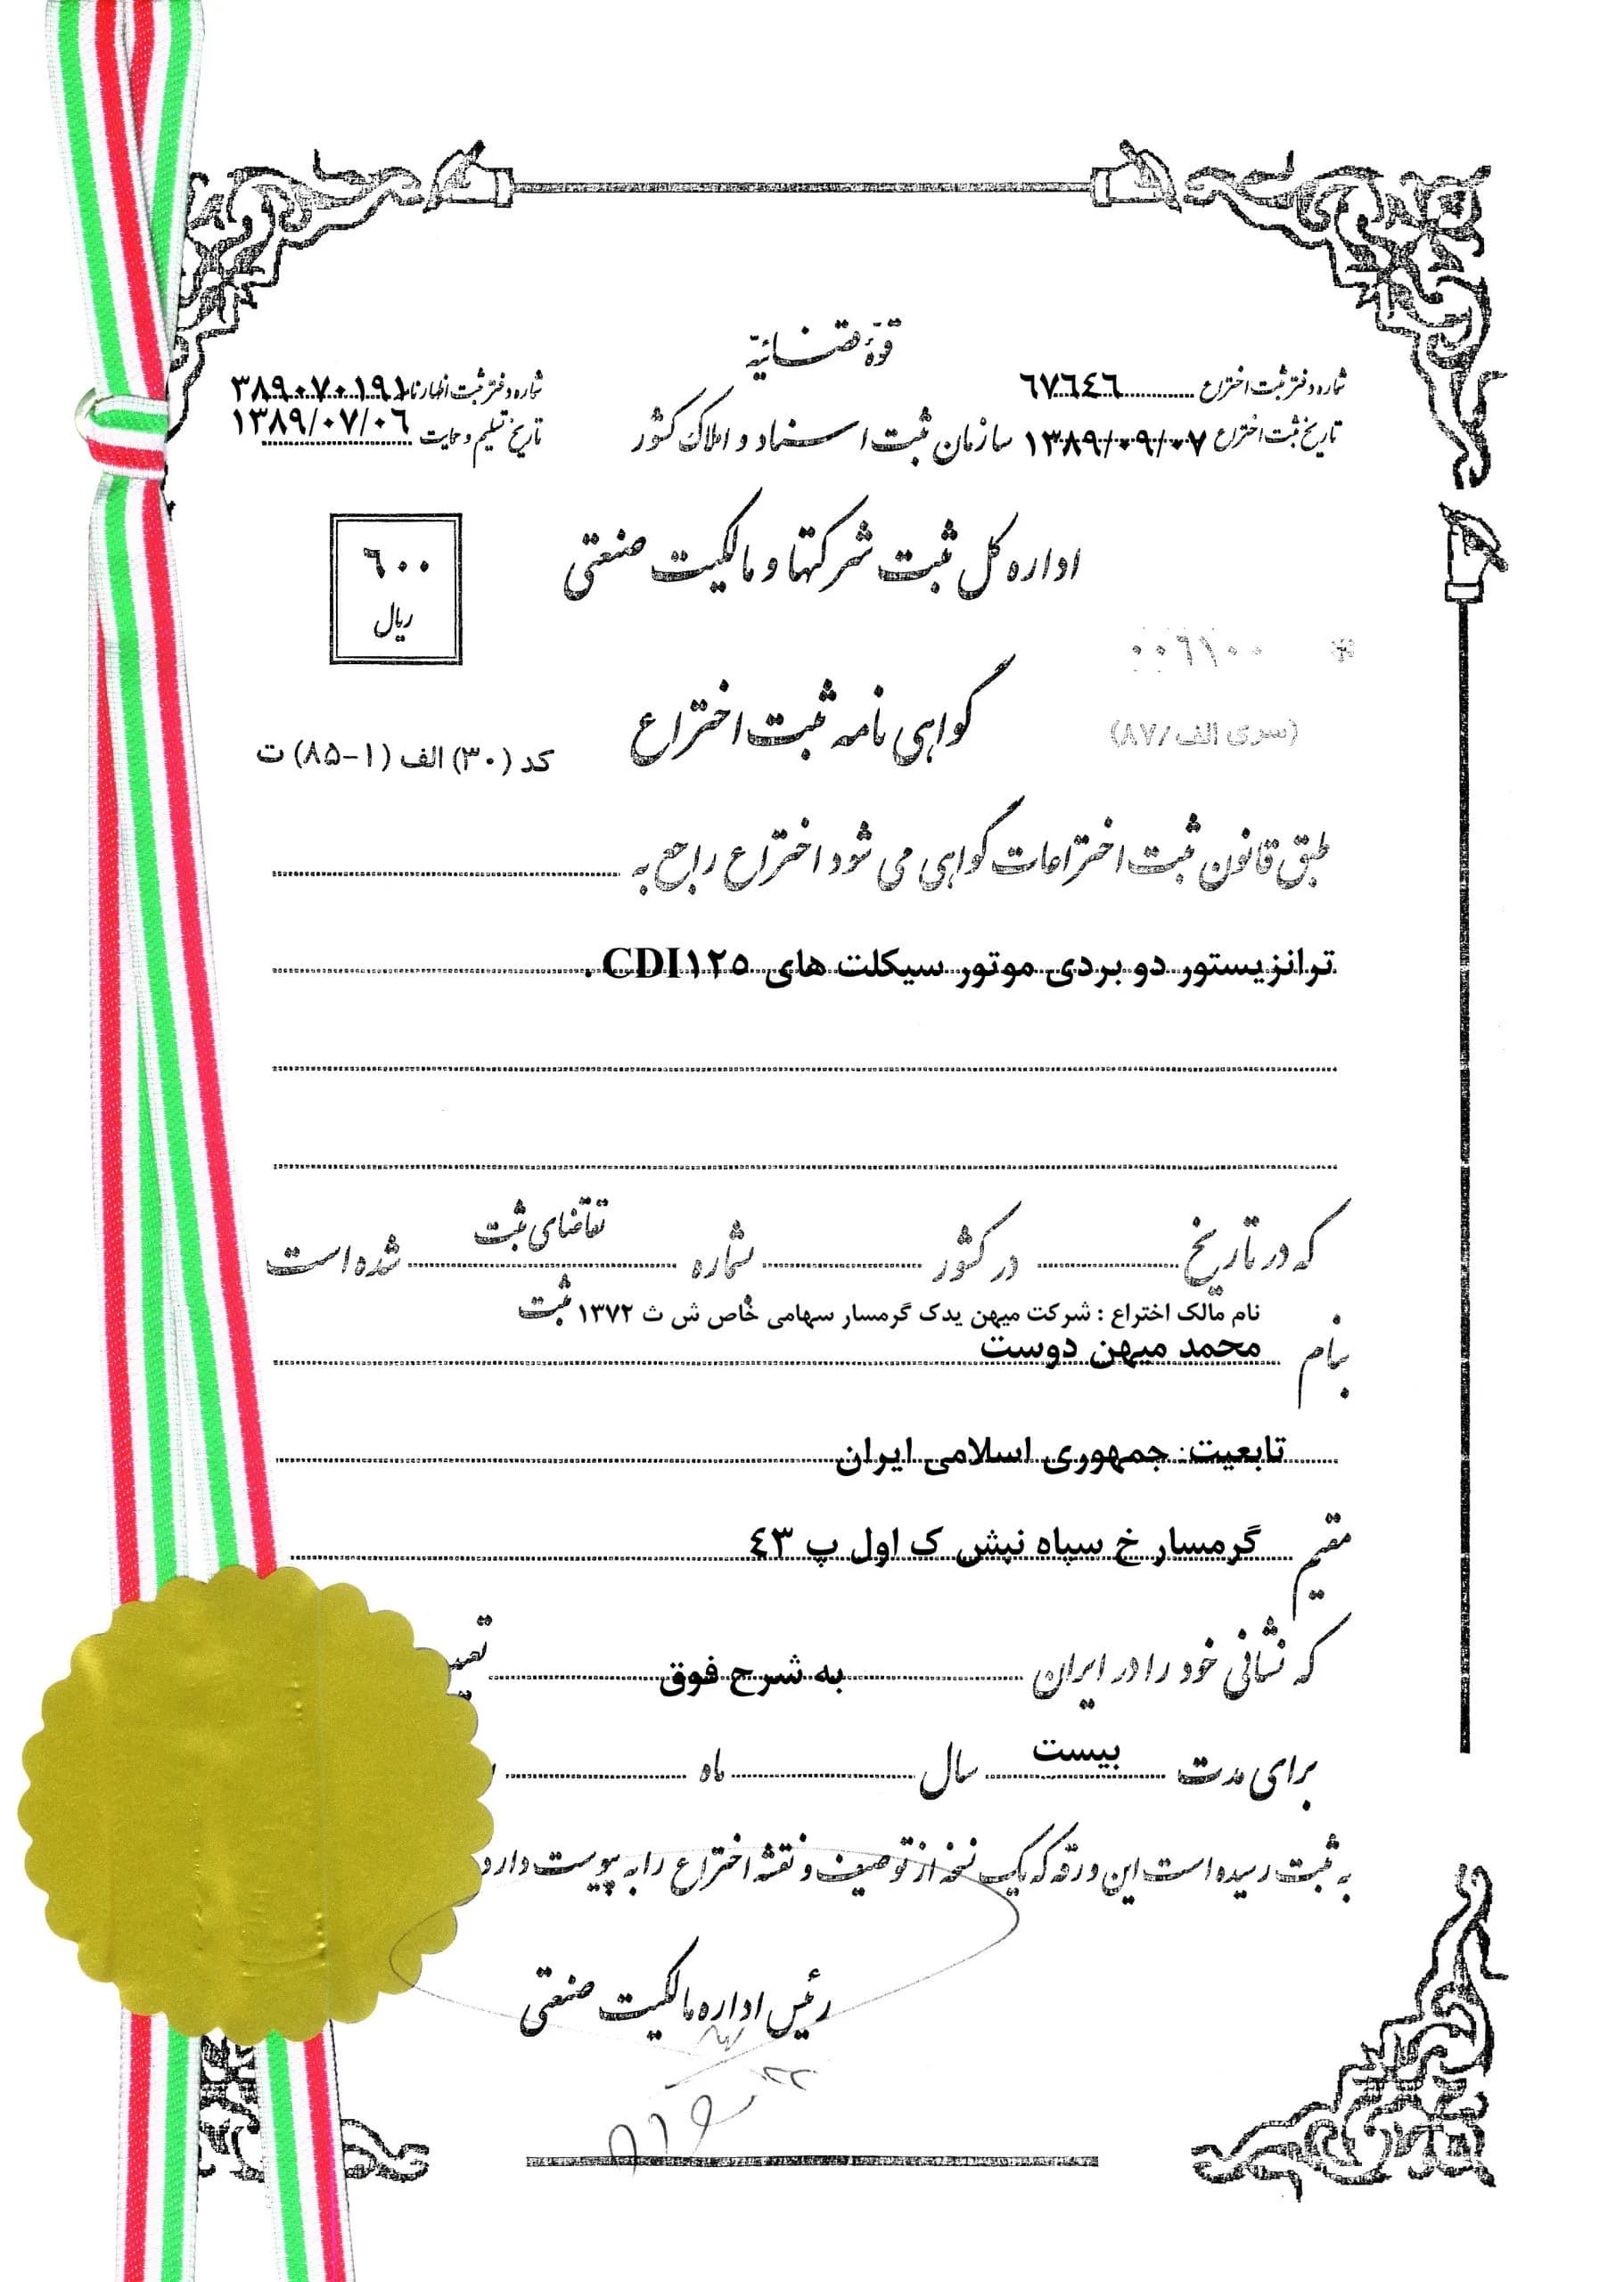 قوّهٔ قضائیّه
شماره دفتر ثبت اختراع ٦٧٦٤٦
شماره دفتر ثبت اظهارنامه ٣٨٩٠٧٠١٩١
تاریخ ثبت اختراع ١٣٨٩/٠٩/٠٧
سازمان ثبت اسناد و املاک کشور
تاریخ تسلیم و حمایت ١٣٨٩/٠٧/٠٦
اداره کل ثبت شرکتها و مالکیت صنعتی
٦٠٠
ریال
گواهی نامه ثبت اختراع
(سری الف/۸۷)
کد (۳۰) الف (۱-۸۵) ت
طبق قانون ثبت اختراعات گواهی می شود اختراع راجع به
ترانزیستور دو بردی موتور سیکلت های CDI١٢٥ .
که در تاریخ در کشور بشماره تقاضای ثبت شده است
نام مالک اختراع : شرکت میهن یدک گرمسار سهامی خاص ش ث ۱۳۷۲ ثبت
بنام محمد میهن دوست
تابعیت: جمهوری اسلامی ایران
مقیم گرمسار خ سپاه نبش ک اول پ ٤٣
که نشانی خود را در ایران به شرح فوق
برای مدت بیست سال ماه
به ثبت رسیده است این ورقه که یک نسخه از توصیف و نقشه اختراع را به پیوست دارد
رئیس اداره مالکیت صنعتی